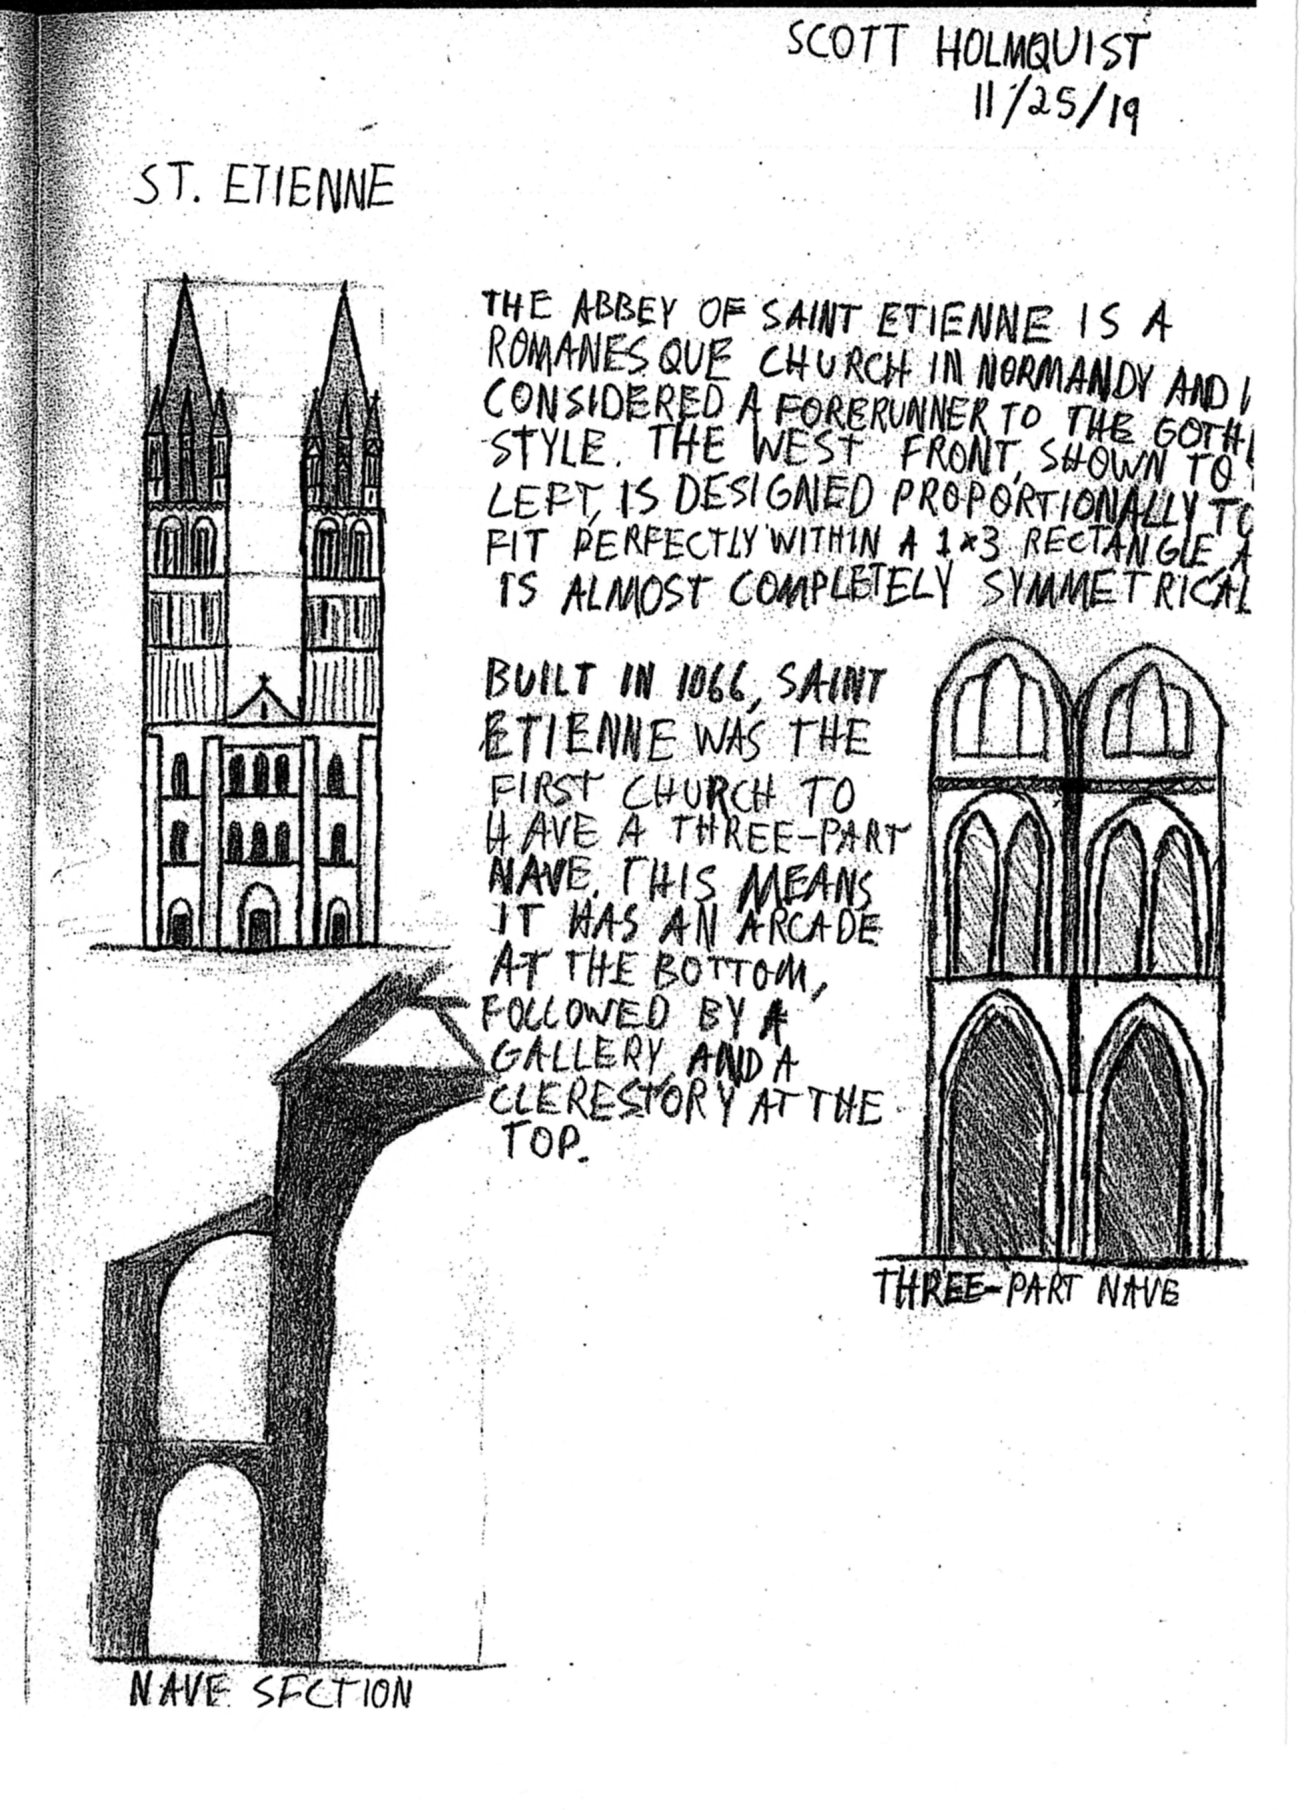 SCOTT HOLMQUIST
11/25/19
ST. ETIENNE
THE ABBEY OF SAINT ETIENNE IS A
ROMANESQUE CHURCH IN NORMANDY AND
CONSIDERED A FORERUNNER TO THE GOTHI
STYLE. THE WEST FRONT, SHOWN TO
LEFT, IS DESIGNED PROPORTIONALLY TO
FIT PERFECTLY WITHIN A 1×3 RECTANGLE, A
IS ALMOST COMPLETELY SYMMETRICAL
BUILT IN 1066, SAINT
ETIENNE WAS THE
FIRST CHURCH TO
HAVE A THREE-PART
NAVE. THIS MEANS
IT HAS AN ARCADE
AT THE BOTTOM,
FOLLOWED BY A
GALLERY, AND A
CLERESTORY AT THE
TOP.
THREE-PART NAVE
NAVE SECTION